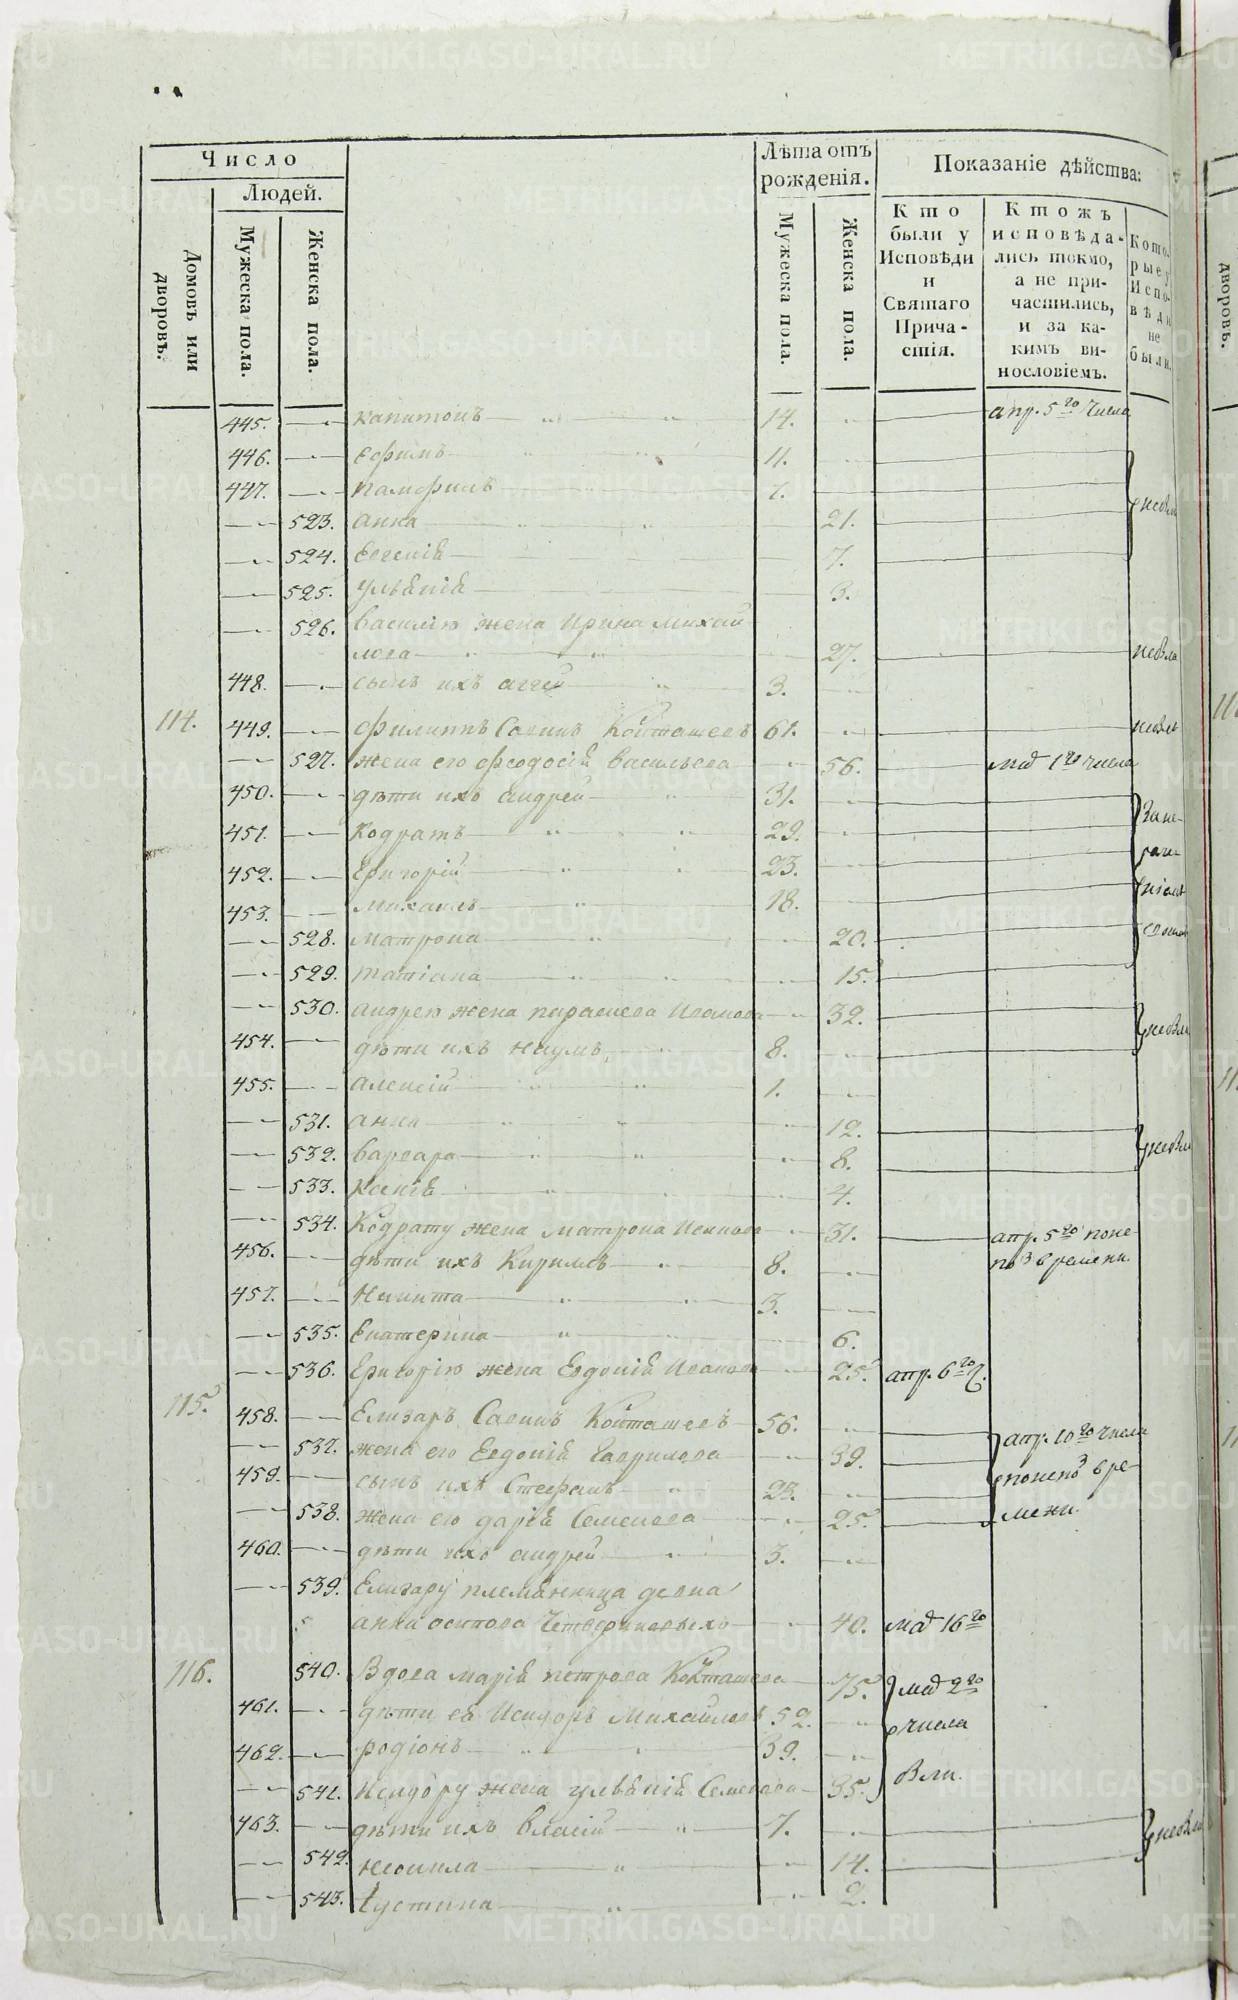 Число
Людей.
Домовъ или дворовъ.
Мужеска пола.
Женска пола.
Лѣта отъ рожденія.
Мужеска пола.
Женска пола.
Показаніе дѣйства:
Кто были у Исповѣди и Святаго Прича-стія.
Ктожъ исповѣда-лись токмо, а не при-частились, и за ка-кимъ ви-нословіемъ.
Кото-рые у Испо-вѣди не были.
445. капитонъ 14. апр. 5го числа
446. Ефимъ 11.
447. памфилъ 7.
523. анна 21.
524. Евгенія 7.
525. Ульянія 3.
526. Василію жена Ирина Михай
лова 27.
448. сынъ ихъ аггей 3.
114. 449. Филиппъ Савинъ Койташевъ 61.
527. жена его Феодосія Васильева 56. маія 1го числа
450. дѣти ихъ андрей 31.
451. Кодратъ 29.
452. Григорій 23.
453. Михаилъ 18.
528. матрона 20.
529. татіана 15.
530. андрею жена параскева Иванова 32.
454. дѣти ихъ наумъ 8.
455. алексій 1.
531. анна 12.
532. варвара 8.
533. Ксенія 4.
534. Кодрату жена матрона Иванова 31. апр. 5го поне-
456. дѣти ихъ Кирилъ 8. времени.
457. Никита 3.
535. Екатерина 6.
536. Григорію жена Евдокія Иванова 25. апр. 6го ч.
115. 458. Елизаръ Савинъ Койташевъ 56. апр. 10го числа
537. жена его Евдокія Гаврилова 39.
459. сынъ ихъ Стефанъ 23. вре-
538. жена его дарія Семенова 25. мени.
460. дѣти ихъ андрей 3.
539. Елизару племянница девка
анна осипова 40. маія 16го
116. 540. Вдова марія петрова Койташева 75. маія 2го
461. дѣти ея Исидоръ Михайловъ 52. числа
462. родіонъ 39.
541. Исидору жена ульянія Семенова 35.
463. дѣти ихъ власій 7.
542. неонила 14.
543. Іустина 2.
METRIKI.GASO-URAL.RU